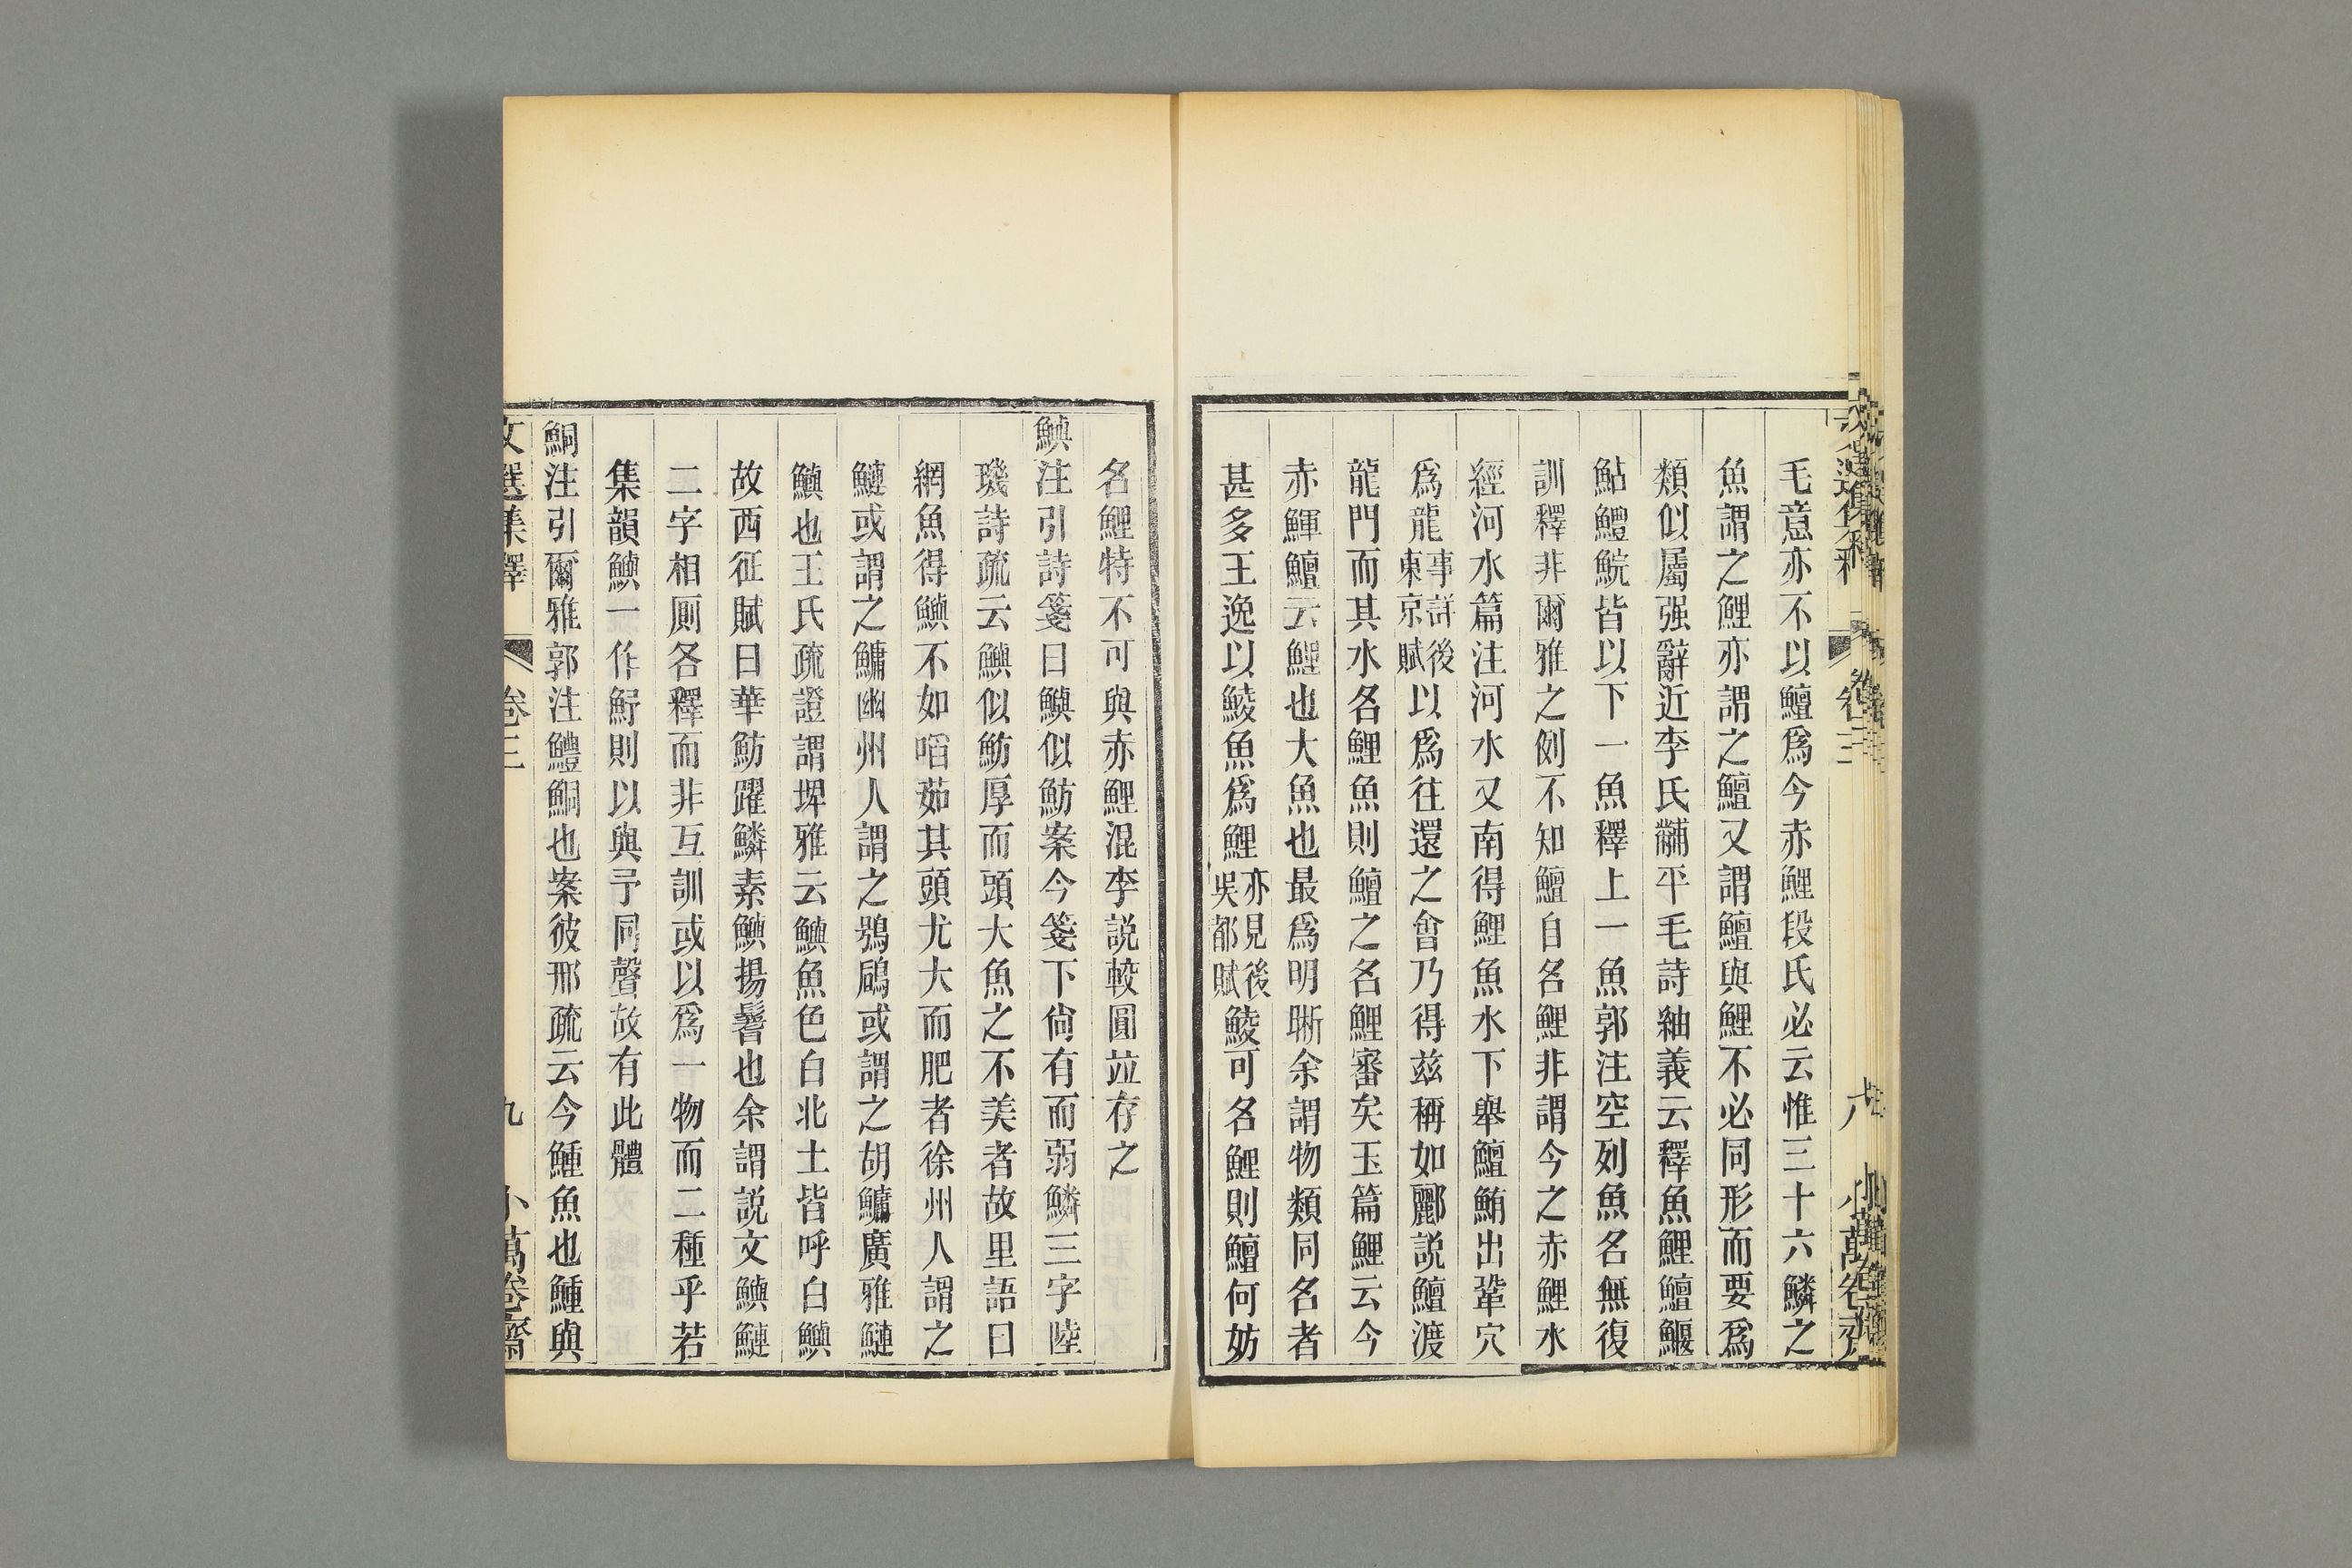 毛意亦不以鱣爲今赤鯉段氏必云惟三十六鱗之
魚謂之鯉亦謂之鱣又謂鱣與鯉不必同形而要爲
類似屬强辭近李氏黼平毛詩紬義云釋魚鯉鱣鰋
鮎鱧鯇皆以下一魚釋上一魚郭注空列魚名無復
訓釋非爾雅之例不知鱣自名鯉非謂今之赤鯉水
經河水篇注河水又南得鯉魚水下舉鱣鮪出鞏穴
爲龍事詳後東京賦以爲往還之會乃得兹稱如酈説鱣渡
龍門而其水名鯉魚則鱣之名鯉審矣玉篇鯉云今
赤鯶鱣云鯉也大魚也最爲明晰余謂物類同名者
甚多王逸以鯪魚爲鯉亦見後吳都賦鯪可名鯉則鱣何妨
名鯉特不可與赤鯉混李説較圓竝存之
鱮注引詩箋曰鱮似魴案今箋下尙有而弱鱗三字陸
璣詩疏云鱮似魴厚而頭大魚之不美者故里語曰
網魚得鱮不如啗茹其頭尤大而肥者徐州人謂之
鰱或謂之鱅幽州人謂之鴞鷉或謂之胡鱅廣雅鰱
鱮也王氏疏證謂埤雅云鱮魚色白北土皆呼白鱮
故西征賦曰華魴躍鱗素鱮揚鬐也余謂説文鱮鰱
二字相厠各釋而非互訓或以爲一物而二種乎若
集韻鱮一作魣則以與予同聲故有此體
鮦注引爾雅郭注鱧鮦也案彼邢疏云今鱧魚也鱧與
文選集釋 卷三 九 小萬卷齋